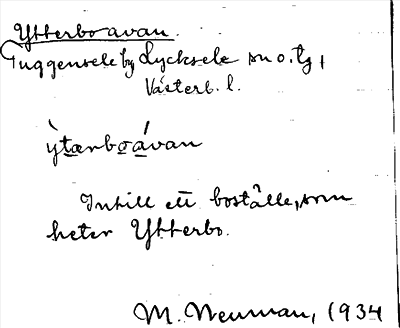 Ytterboavan.
Tuggensele by Lycksele sn o. tg,
Västerb. l.
ỳtærboávan
Intill ett boställe, som
heter Ytterbo.
M. Neuman, 1934